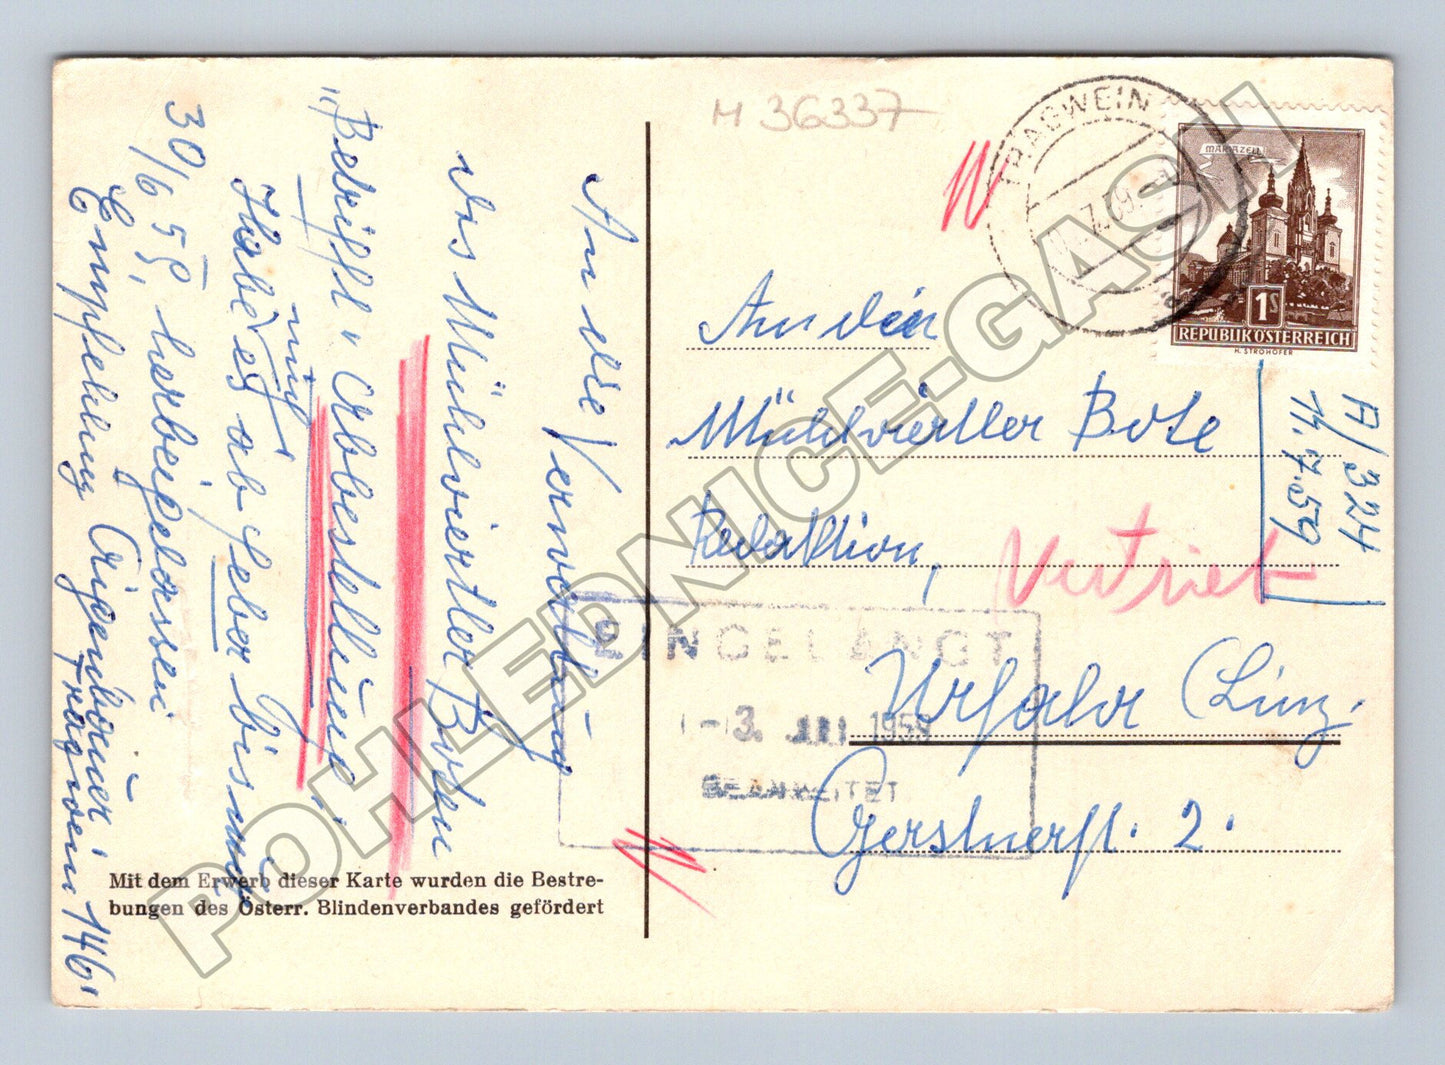 An die Verwaltung
des Mühlviertler Boten
"Betrifft" Abbestellung!
Habe es ab Feber bis
mir
30/6 59,
Empfehlung
Tragwein 146
Mit dem Erwerb dieser Karte wurden die Bestre-
bungen des Österr. Blindenverbandes gefördert
M 36337
TRAGWEIN
7.59
MARIAZELL
1S
REPUBLIK ÖSTERREICH
H. STROHOFER
An den
Mühlviertler Bote
Redaktion,
Vertrieb
Urfahr (Linz,
Gerstnerst. 2.
A/324
14.7.59
EINGELANGT
-3. JULI 1959
BEARBEITET
POHLEDNICE-GASH